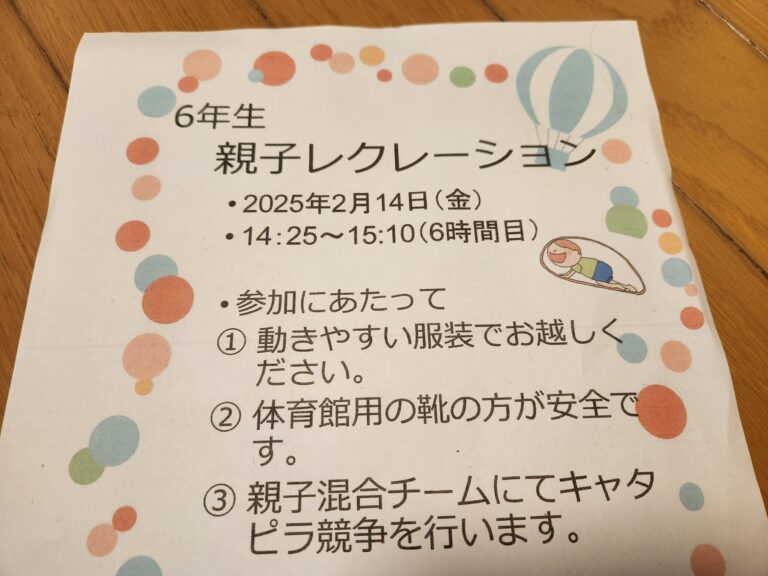 6年生
親子レクレーション
•2025年2月14日(金)
•14:25～15:10(6時間目)
•参加にあたって
① 動きやすい服装でお越しく
ださい。
② 体育館用の靴の方が安全で
す。
③ 親子混合チームにてキャタ
ピラ競争を行います。